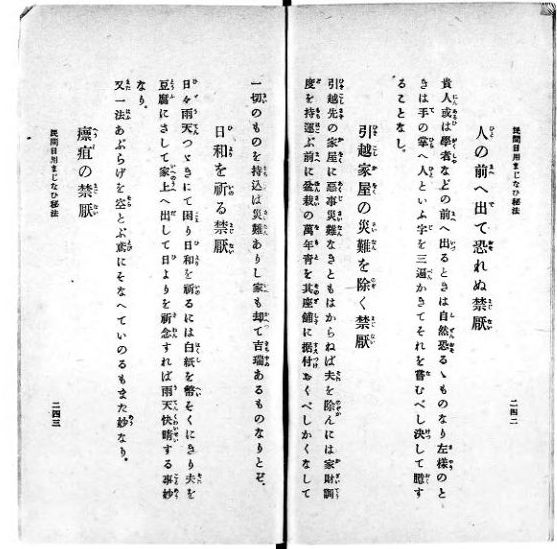 民間日用まじなひ秘法
人の前へ出て恐れぬ禁厭
貴人或は學者などの前へ出るときは自然恐るゝものなり左樣のと
きは手の掌へ人といふ字を三遍かきてそれを嘗むべし決して臆す
ることなし。
引越家屋の災難を除く禁厭
引越先の家屋に惡事災難なきともはからねば夫を除んには家財調
度を持運ぶ前に盆栽の萬年靑を其座鋪に据付おくべしかくなして
二四二
一切のものを持込は災難ありし家も却て吉瑞あるものなりとぞ。
日和を祈る禁厭
日々雨天つゞきにて困り日和を祈るには白紙を幣そくにきり夫を
豆腐にさして家上へ出して日よりを祈念すれば雨天快晴する事妙
なり。
又一法あぶらげを空とぶ鳶にそなへていのるもまた妙なり。
瘭疽の禁厭
民間日用まじなひ秘法
二四三